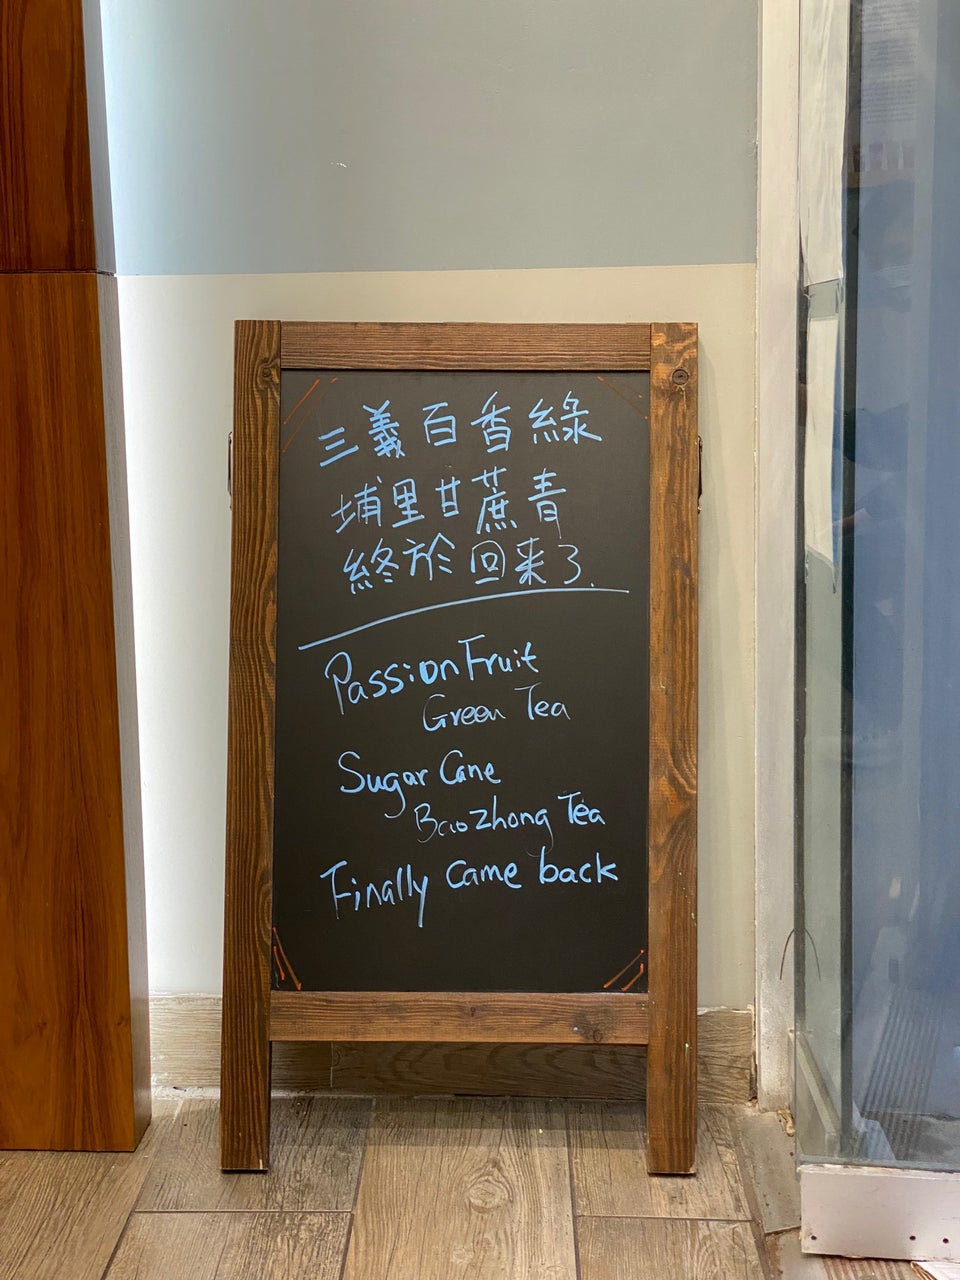 三義百香綠
埔里甘蔗青
終於回来了.
Passion Fruit
Green Tea
Sugar Cane
Baozhong Tea
Finally came back